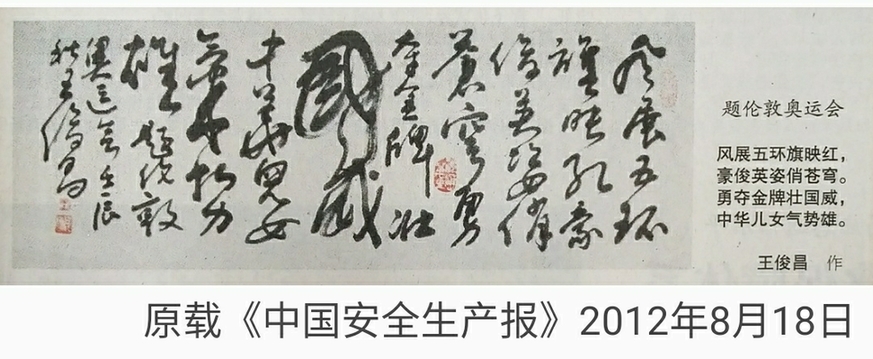 风展五环
旗映红豪
俊英姿俏
蒼穹勇
夺金牌壮
國威
中華兒女
气势
雄 题伦敦
奥运会壬辰
秋王俊昌
题伦敦奥运会
风展五环旗映红，
豪俊英姿俏苍穹。
勇夺金牌壮国威，
中华儿女气势雄。
王俊昌 作
原载《中国安全生产报》2012年8月18日